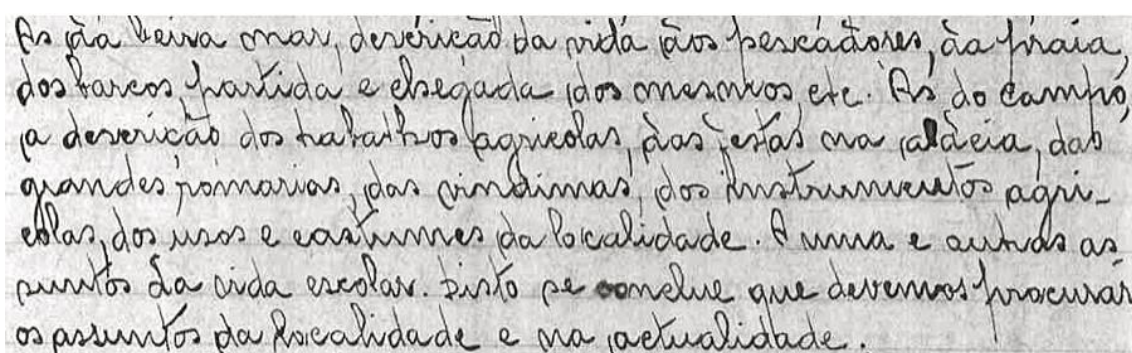 As da beira mar, descrição da vida dos pescadores, da praia,
dos barcos, partida e chegada dos mesmos, etc. As do campo,
a descrição dos trabalhos agricolas, das festas na aldeia, das
grandes romarias, das vindimas, dos instrumentos agri-
colas, dos usos e costumes da localidade. A uma e outras as
suntos da vida escolar. Disto se conclue que devemos procurar
os assuntos da localidade e na actualidade.